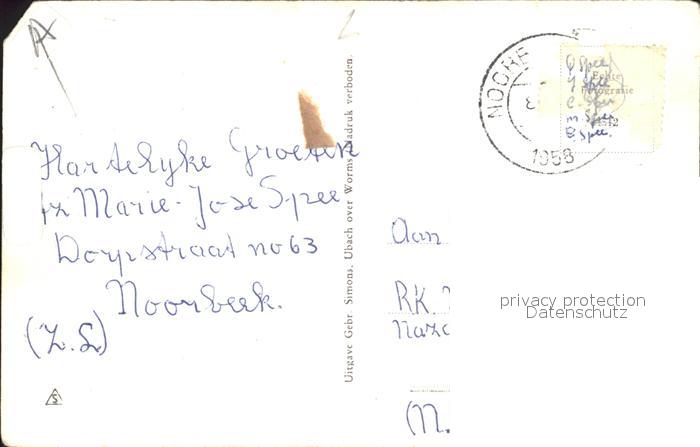 Hartelyke Groeten
fr Marie-Jose Spee
Dorpstraat no 63
Noorbeek.
(Z.L)
Uitgave Gebr. Simons, Ubach over Worms Nadruk verboden.
NOORB
1958
J Spee
m. Spee
Spee.
Echte
Fotografie
Aan
RK.
Naza
(N.
privacy protection
Datenschutz
S